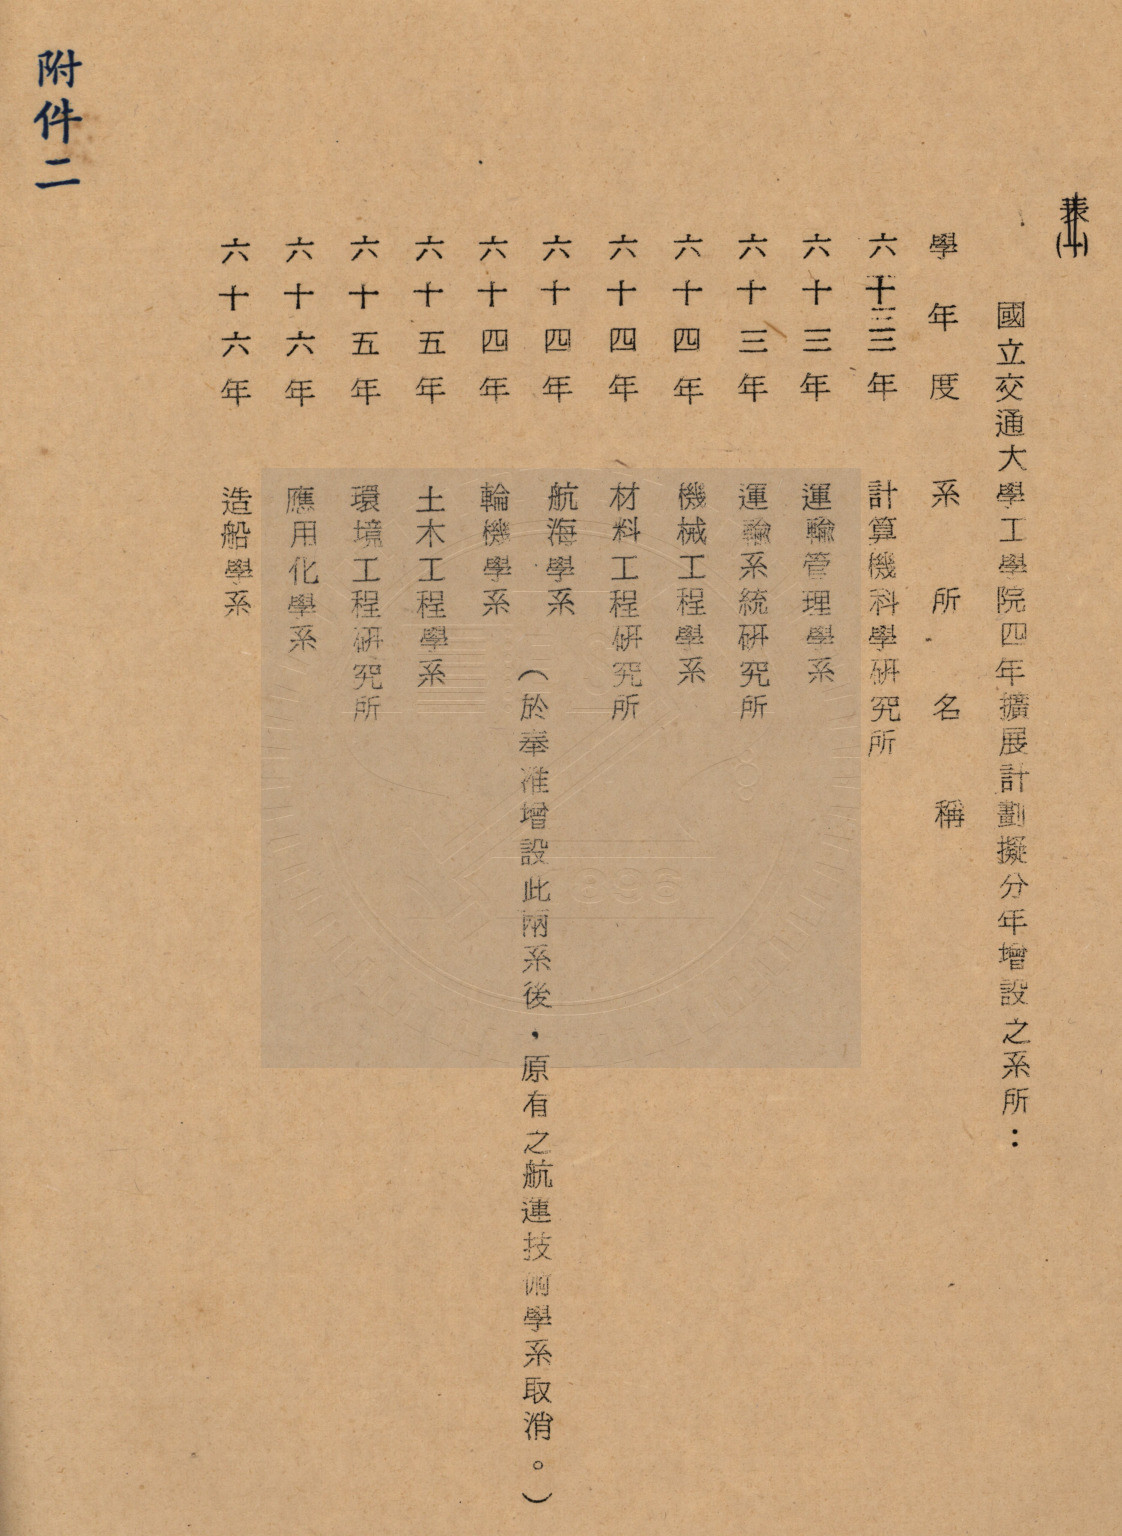 表(十)
國立交通大學工學院四年擴展計劃擬分年增設之系所：
學年度 系所名稱
六十三年 計算機科學研究所
六十三年 運輸管理學系
六十三年 運輸系統研究所
六十四年 機械工程學系
六十四年 材料工程研究所
六十四年 航海學系
（於奉准增設此兩系後，原有之航運技術學系取消。）
六十四年 輪機學系
六十五年 土木工程學系
六十五年 環境工程研究所
六十六年 應用化學系
六十六年 造船學系
附件二
1896